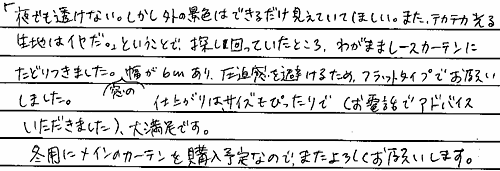 「夜でも透けない。しかし外の景色はできるだけ見えていてほしい。また、テカテカ光る
生地はイヤだ。」ということで、探し回っていたところ、わがままレースカーテンに
たどりつきました。窓の幅が6mあり、圧迫感を避けるため、フラットタイプでお願い
しました。 仕上がりは、サイズもぴったりで(お電話でアドバイス
いただきました)、大満足です。
冬用にメインのカーテンを購入予定なので、またよろしくお願いします。